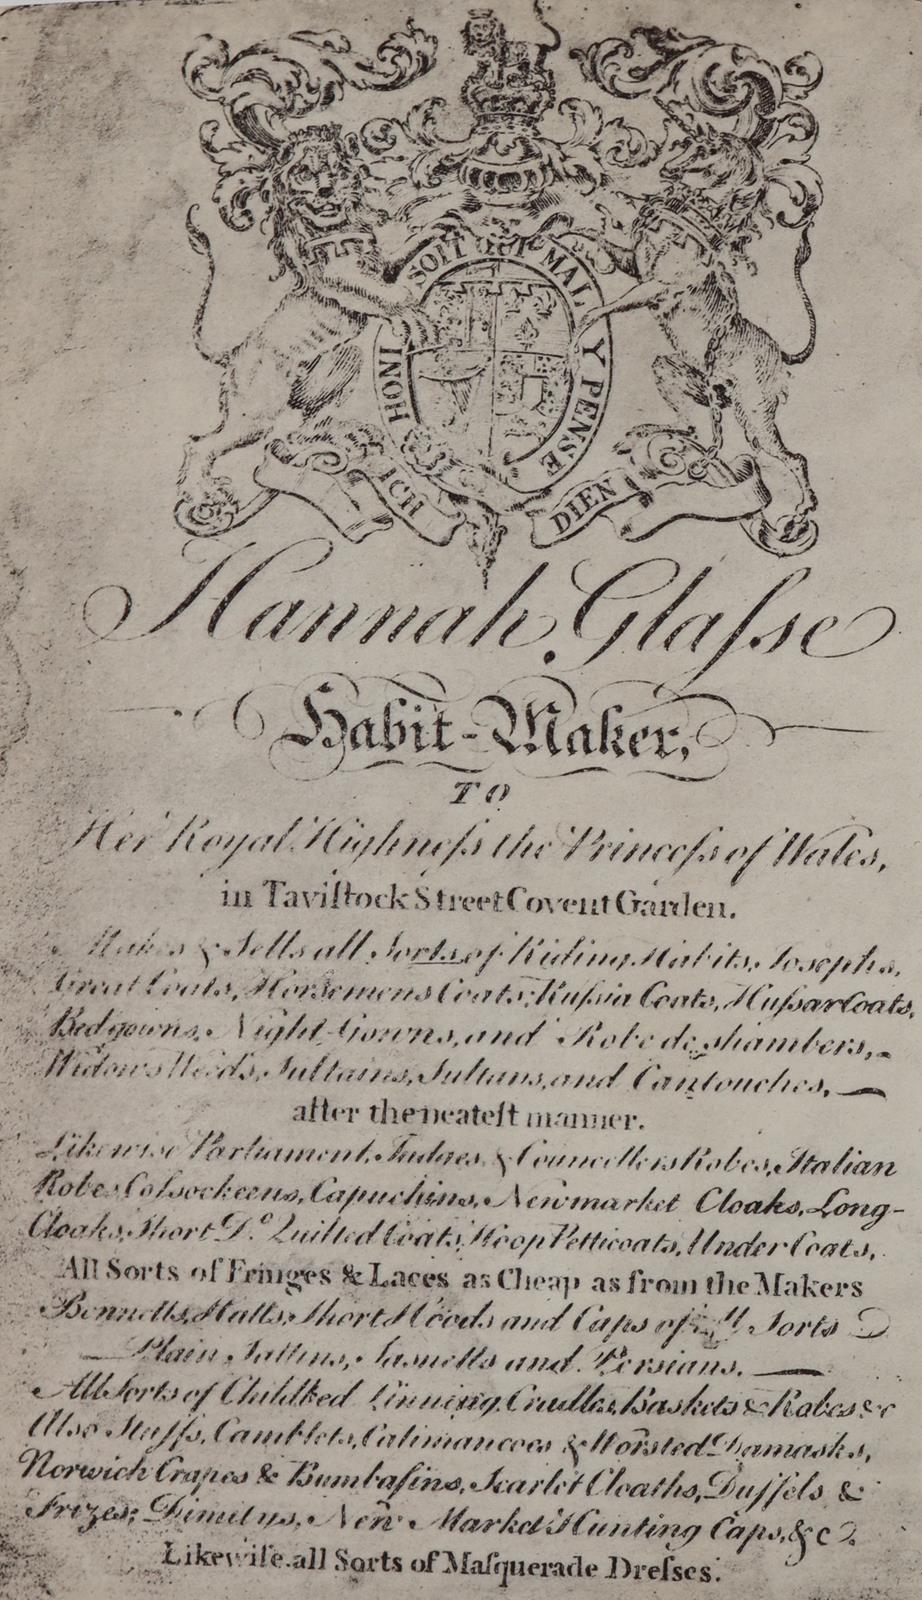 HONI SOIT QUI MAL Y PENSE
ICH DIEN
Hannah Glaſse
Habit-Maker,
TO
Her Royal Highneſs the Princeſs of Wales,
in Taviſtock Street Covent Garden.
Makes & Sells all Sorts of Riding Habits, Josephs,
Great Coats, Horsemens Coats, Ruſsia Coats, Huſsar Coats,
Bedgowns, Night-Gowns, and Robe de shambers,
Widows Weeds, Sultains, Sultans, and Cantouches,
after the neateſt manner.
Likewise Parliament, Judges, & Councellers Robes, Italian
Robes, Coſsockeens, Capuchins, Newmarket Cloaks, Long-
Cloaks, Short Do. Quilted Coats, Hoop Petticoats, Under Coats,
All Sorts of Fringes & Laces as Cheap as from the Makers
Bennetts, Hatts, Short Hoods and Caps of all Sorts
Plain Sattins, Sasnetts and Persians.
All Sorts of Childbed Linning, Cradles, Baskets & Robes &c
Also Stuffs, Camblets, Calimancoes & Worsted Damasks,
Norwich Crapes & Bumbaſins, Scarlet Cloaths, Duffels &
Frizes; Dimitys, New Market Hunting Caps, &c.
Likewiſe all Sorts of Maſquerade Dreſses.